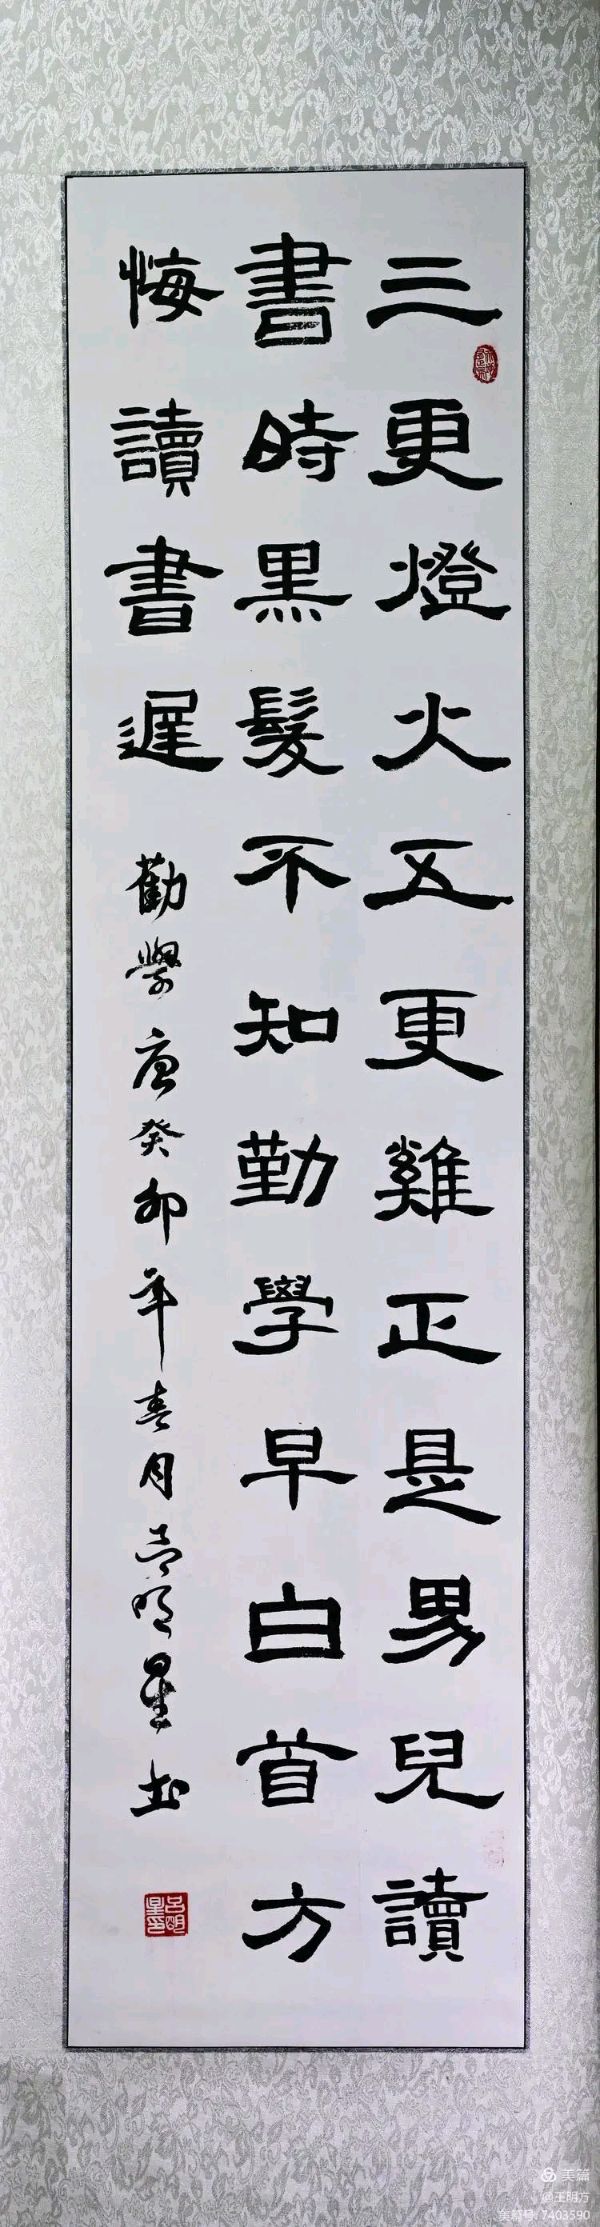 三更燈火五更雞正是男兒讀
書時黑髮不知勤學早白首方
悔讀書遲
勸學 癸卯年春月吕明星书
吕明星印
美篇
@王明方
美篇号:7403590